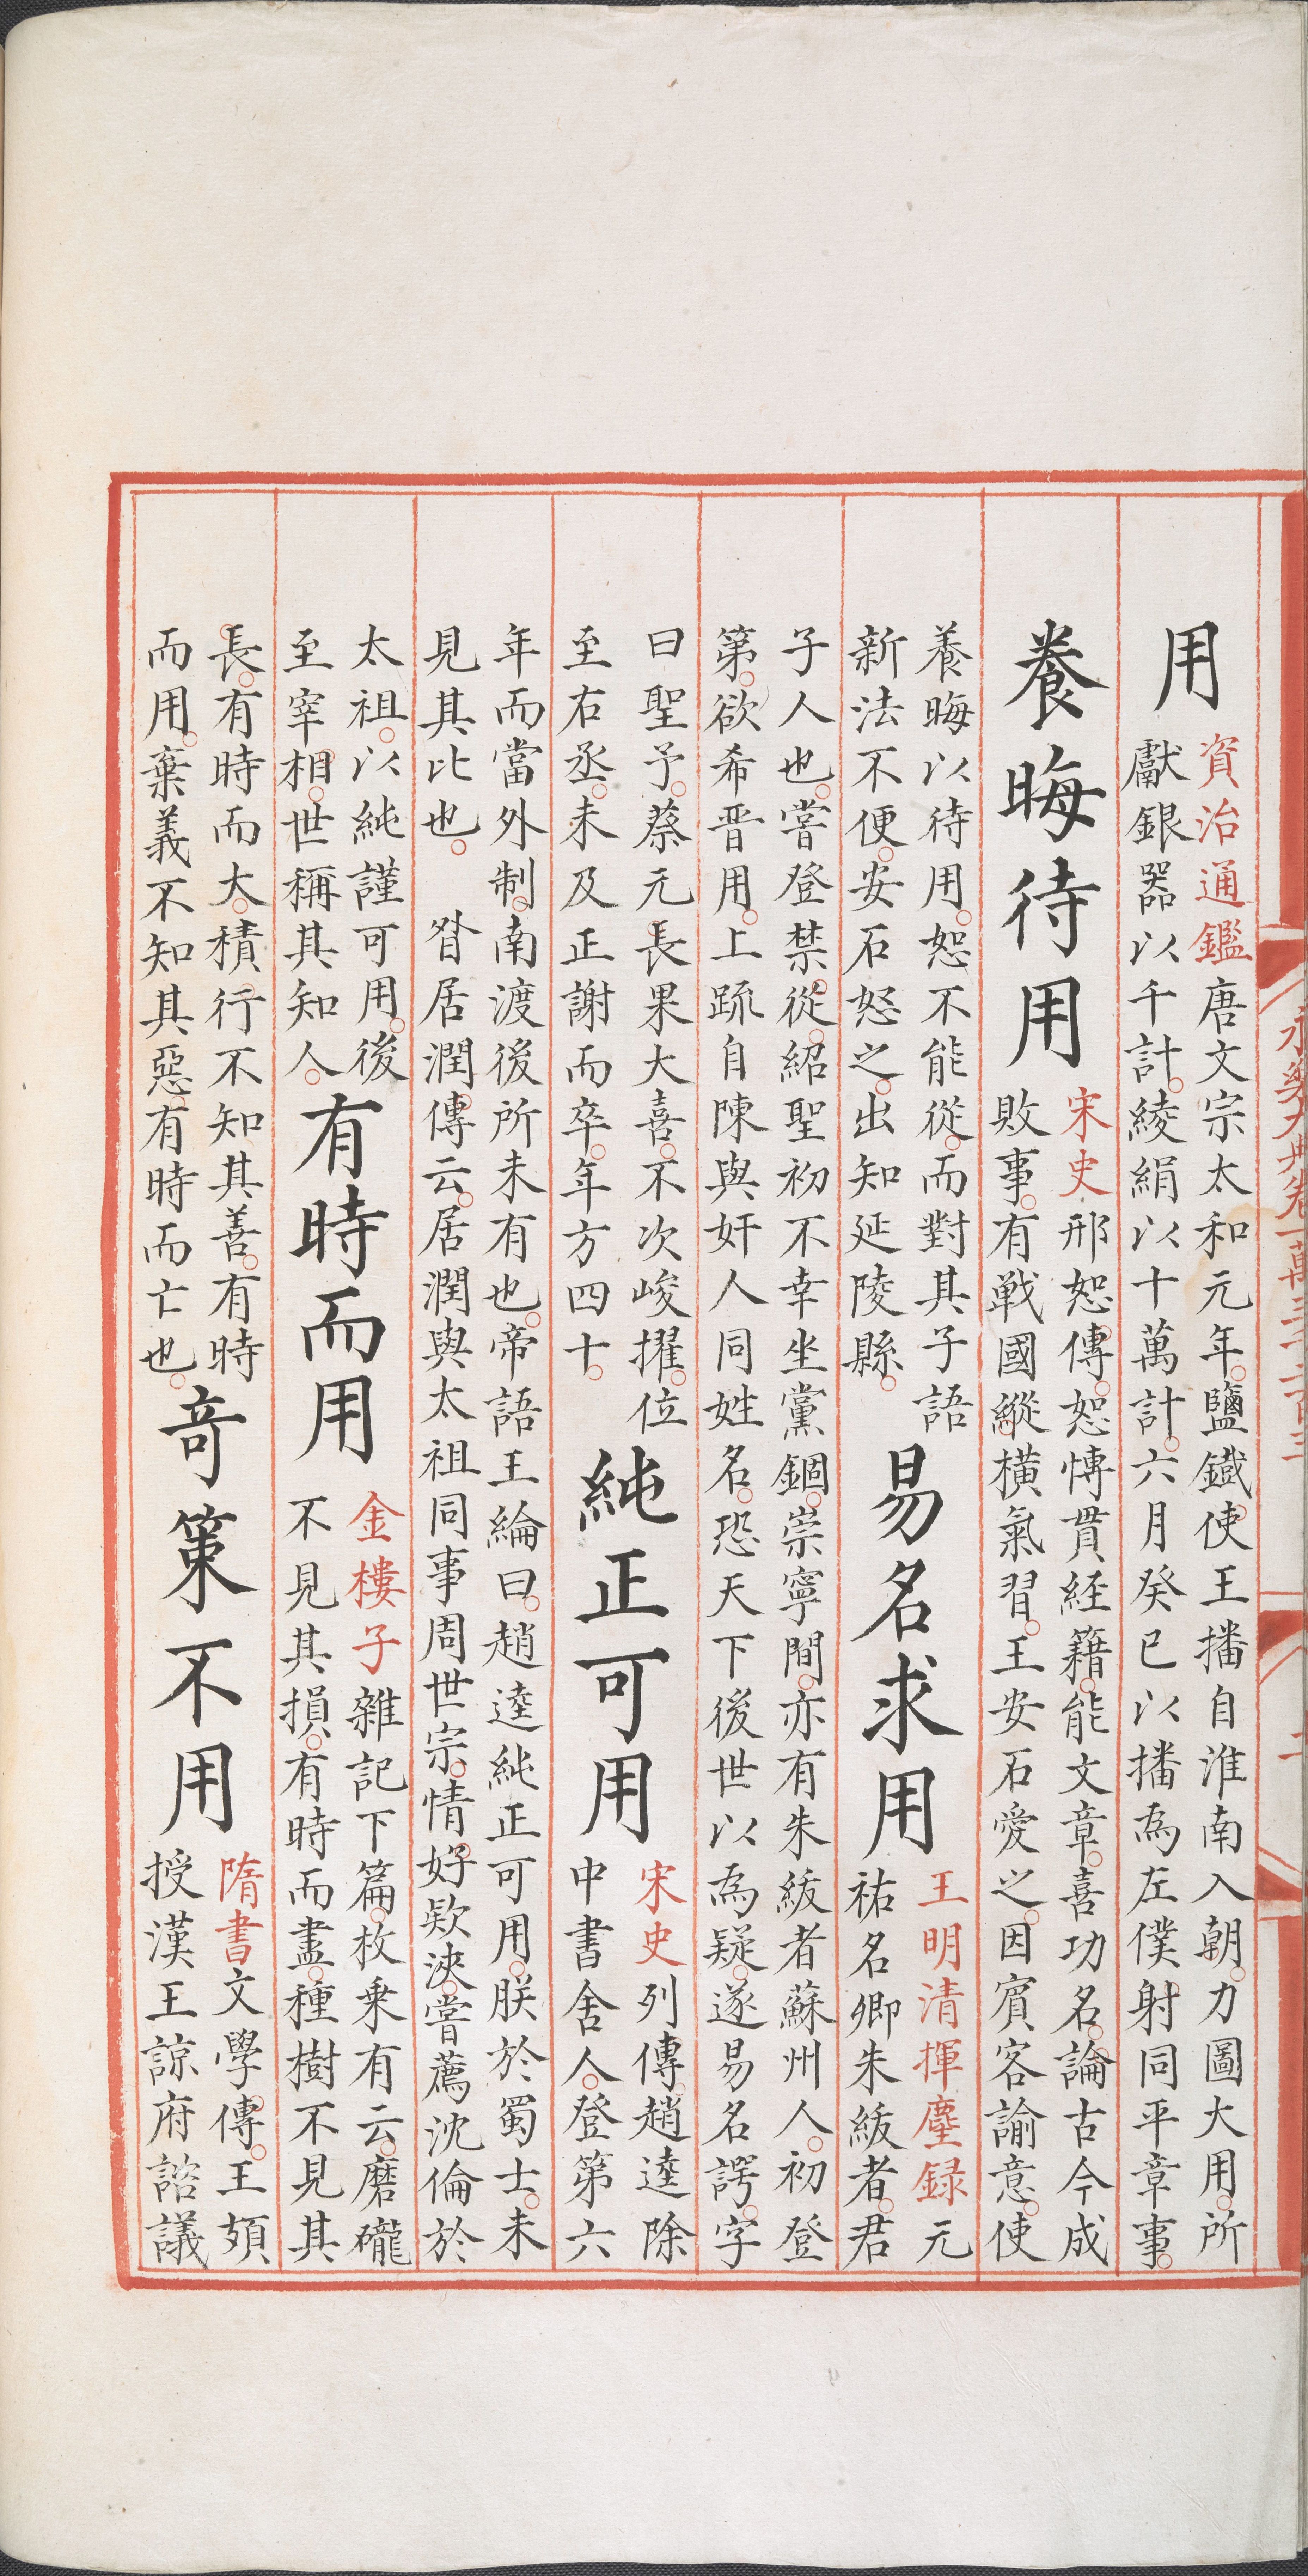 用
資治通鑑唐文宗太和元年鹽鐵使王播自淮南入朝力圖大用所
獻銀器以千計綾絹以十萬計六月癸巳以播為左僕射同平章事
養晦待用
宋史邢恕傳恕博貫經籍能文章喜功名論古今成
敗事有戰國縱橫氣習王安石愛之因賓客諭意使
養晦以待用恕不能從而對其子語
新法不便安石怒之出知延陵縣
易名求用
王明清揮麈録元
祐名卿朱紱者君
子人也嘗登禁從紹聖初不幸坐黨錮崇寧間亦有朱紱者蘇州人初登
第欲希晉用上疏自陳與奸人同姓名恐天下後世以為疑遂易名諤字
曰聖予蔡元長果大喜不次峻擢位
至右丞未及正謝而卒年方四十
純正可用
宋史列傳趙逵除
中書舍人登第六
年而當外制南渡後所未有也帝語王綸曰趙逵純正可用朕於蜀士未
見其比也 昝居潤傳云居潤與太祖同事周世宗情好欵浹嘗薦沈倫於
太祖以純謹可用後
至宰相世稱其知人
有時而用
金樓子雜記下篇枚乗有云磨礲
不見其損有時而盡種樹不見其
長有時而大積行不知其善有時
而用棄義不知其惡有時而亡也
奇策不用
隋書文學傳王頍
授漢王諒府諮議
永樂大典卷一萬三千二百三
二